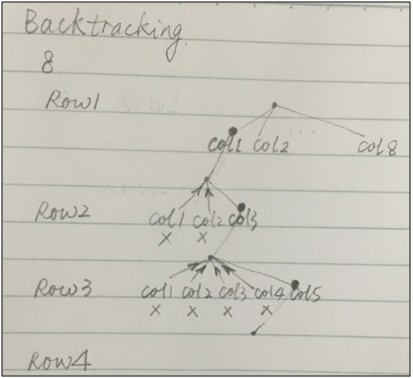 Backtracking
8
Row1
col1 col2 ... col8
Row2
col1 col2 col3
x x
Row3
col1 col2 col3 col4 col5
x x x x
Row4